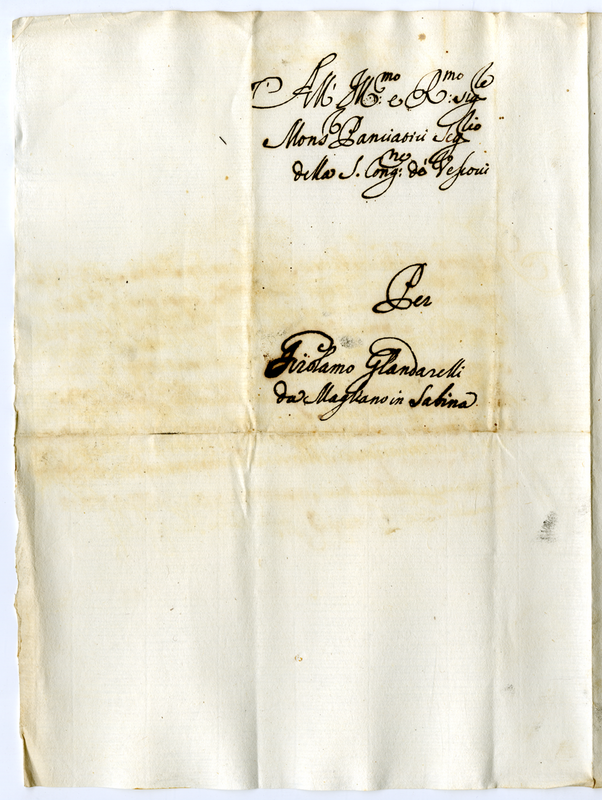 All' Ill.mo e R.mo sig.le
Mons. Panciatici Seg.rio
della S. Cong.ne de Vescovi
Per
Girolamo Glandarelli
da Magliano in Sabina